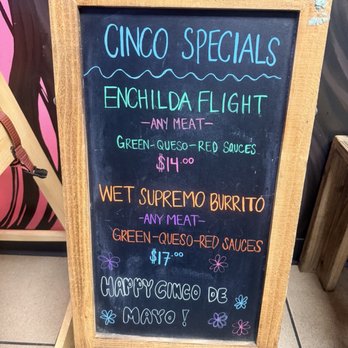 CINCO SPECIALS
ENCHILDA FLIGHT
-ANY MEAT-
GREEN-QUESO-RED SAUCES
$14.00
WET SUPREMO BURRITO
-ANY MEAT-
GREEN-QUESO-RED SAUCES
$17.00
HAPPY CINCO DE
MAYO!